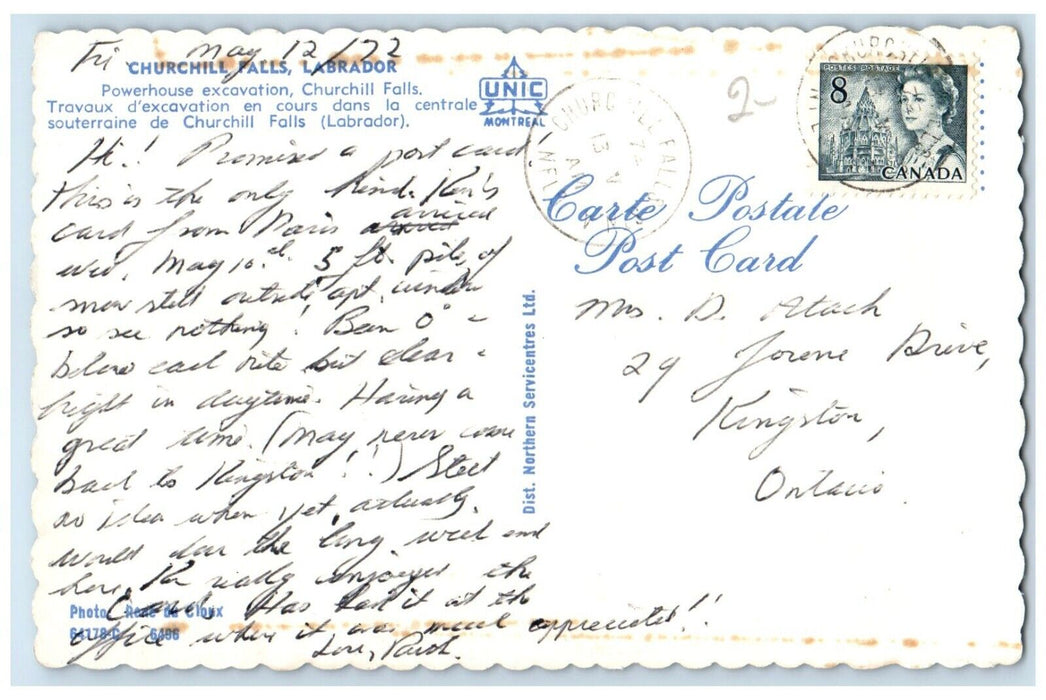 Fri May 12/72
CHURCHILL FALLS, LABRADOR
Powerhouse excavation, Churchill Falls.
Travaux d'excavation en cours dans la centrale
souterraine de Churchill Falls (Labrador).
UNIC
MONTREAL
2-
8
POSTES POSTAGE
CANADA
Carte Postale
Post Card
Hi! Promised a post card
this is the only kind. Ken's
card from Paris arrived
Wed. May 10th. 5 ft. pile of
snow still outside apt. window
so see nothing! Been 0° -
below each nite but clear -
bright in daytime. Having a
great time. (May never come
back to Kingston!!)
no idea when yet, actually.
would the long week end
here. Ken really enjoyed the
Card. Has had it at the
office where it was much appreciated!!
Love,
Mrs. D. Atach
29 Jorene Drive,
Kingston,
Ontario.
Dist. Northern Servicentres Ltd.
Photo René de Cloux
64178-C 6406